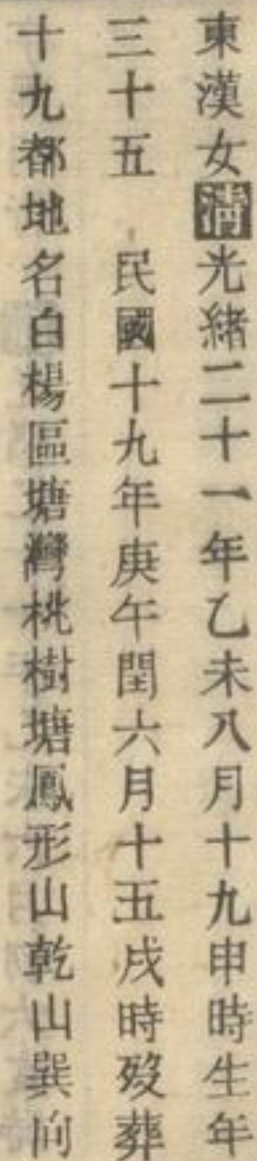 東漢女清光緒二十一年乙未八月十九申時生年
三十五 民國十九年庚午閏六月十五戌時歿葬
十九都地名白楊區塘灣桃樹塘鳳形山乾山巽向